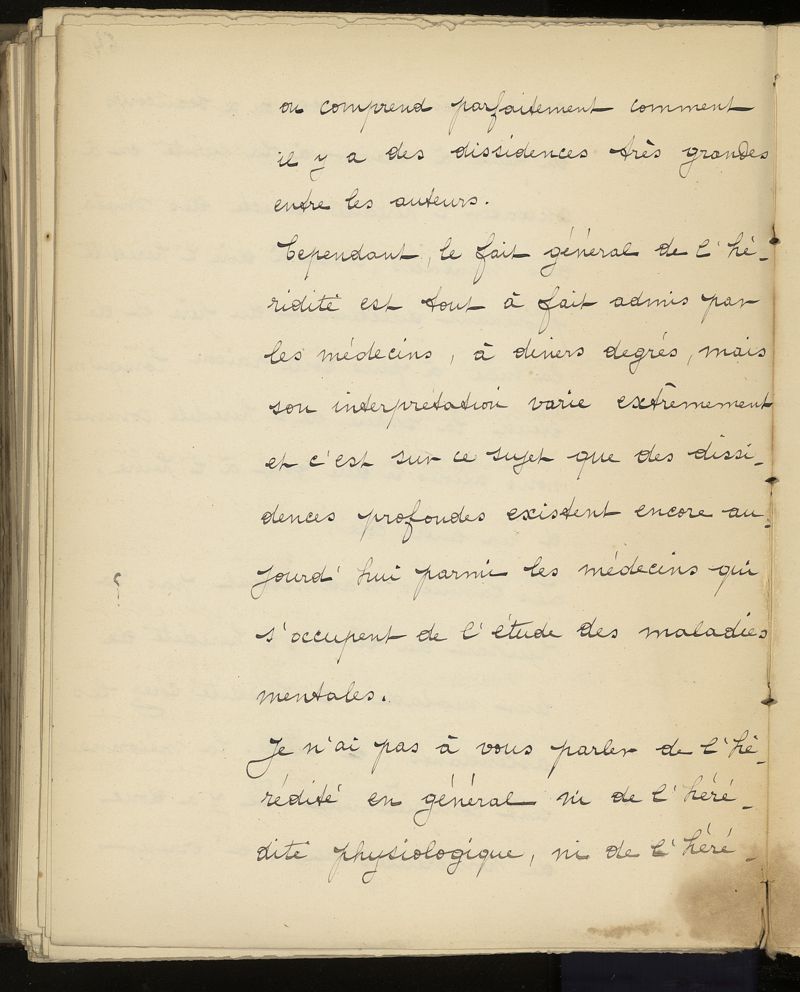 on comprend parfaitement comment
il y a des dissidences très grandes
entre les auteurs.
Cependant, le fait général de l'hé-
ridité est tout à fait admis par
les médecins, à divers degrés, mais
son interprétation varie extrêmement
et c'est sur ce sujet que des dissi-
dences profondes existent encore au-
jourd'hui parmi les médecins qui
s'occupent de l'étude des maladies
mentales.
Je n'ai pas à vous parler de l'hé-
rédité en général ni de l'héré-
dité physiologique, ni de l'héré-